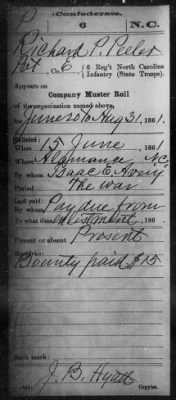 P
Confederate.
6 N.C.
Richard P. Peeler
Pvt, Co. E, 6 Reg't North Carolina
Infantry (State Troops).
Appears on
Company Muster Roll
of the organization named above,
for June 30 to Aug 31, 1861.
Enlisted:
When 15 June, 1861
Where Alamance, N.C.
By whom Isaac E. Avery
Period The war
Last paid:
By whom Pay due from
To what time Enlistment, 186
Present or absent Present
Remarks:
Bounty paid $15
Book mark:
J. B. Hyatt
Copyist.